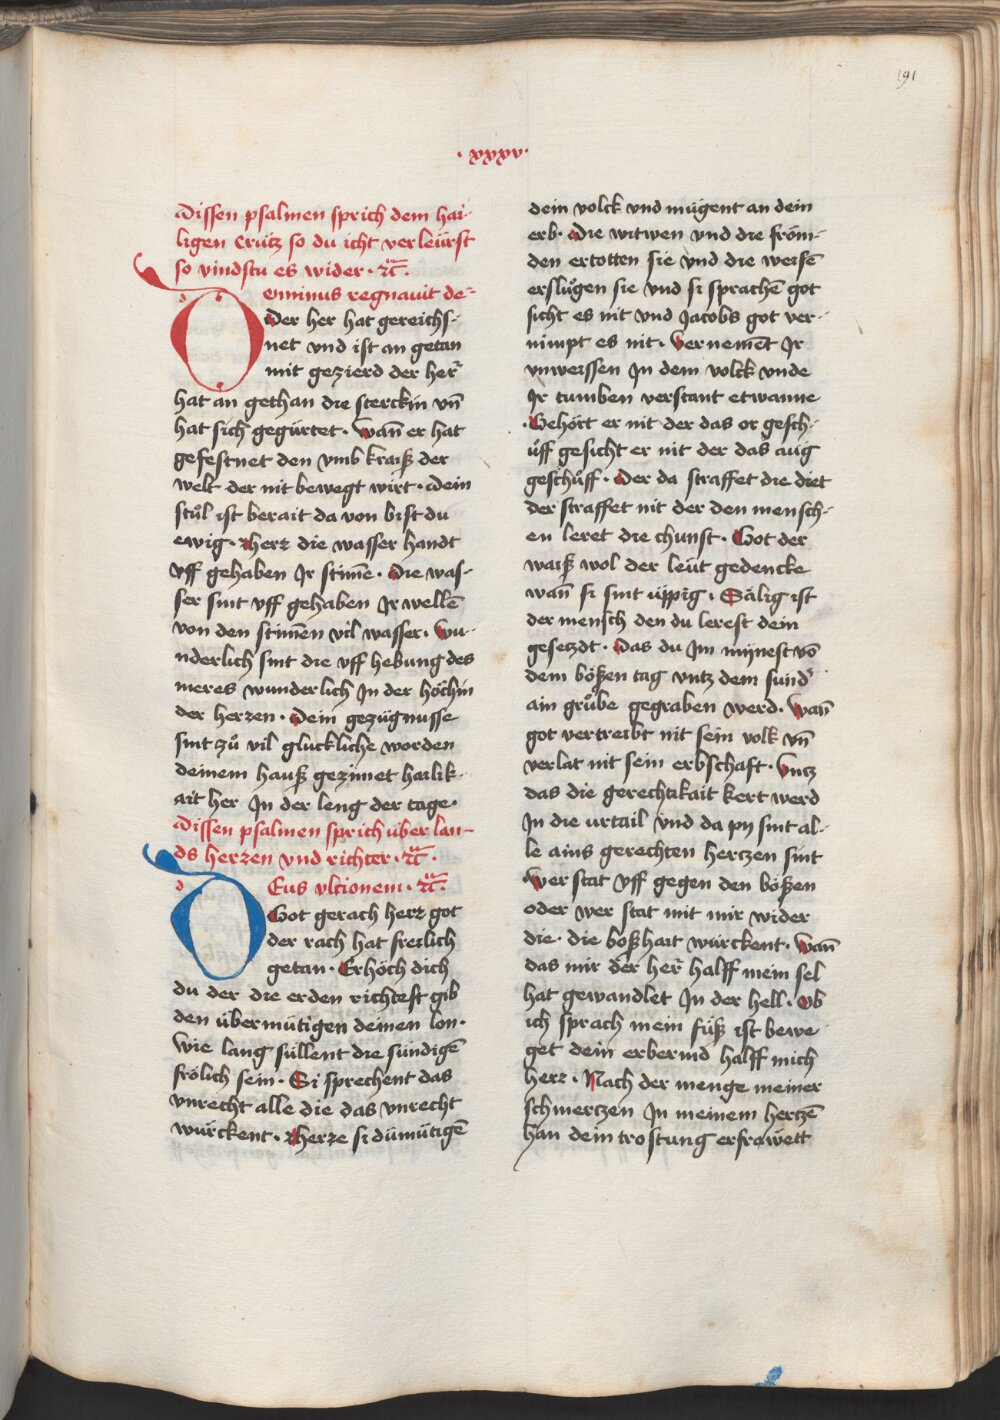 191
· xxxv ·
Dissen psalmen sprich dem hai-
ligen Crütz so du icht verleürst
so vindstu es wider · ꝛc̄ ·
Dominus regnauit de-
Der her hat gereichs-
net vnd ist an getan
mit gezierd der her̄
hat an gethan die sterckin vn̄
hat sich gegürtet · Wan̄ er hat
gefestnet den vmb kraiß der
welt der nit bewegt wirt · Dein
stůl ist berait da von bist du
ewig · Herꝛ die wasser handt
vff gehaben Ir stim̄e · Die was-
ser sint vff gehaben Ir wellē
von den stim̄en vil wasser · Wu-
nderlich sint die vff hebung des
meres wunderlich In der höchin
der herzen · Dein gezügnusse
sint zů vil gluckliche worden
deinem hauß gezim̄et hailik-
ait her In der leng der tage ·
Dissen psalmen sprich über lan-
ds herzen vnd richter · ꝛc̄ ·
Deus vltionem · ꝛc̄ ·
Got gerach herꝛ got
der rach hat freilich
getan · Erhöch dich
du der die erden richtest gib
den übermütigen deinen lon ·
Wie lang süllent die sündigē
frölich sein · Si sprechent das
vnrecht alle die das vnrecht
würckent · Herꝛe si dümütigē
dein volck vnd mügent an dein
erb · Die witwen vnd die fröm-
den ertotten sie vnd die weisē
erslůgen sie vnd si sprachē got
sicht es nit vnd Jacobs got ver-
nimpt es nit · Vernemēt Ir
vnweissen In dem volck vnde
Ir tumben verstant etwanne
· Gehört er nit der das or gesch-
ůff gesicht er nit der das aüg
geschůff · Der da straffet die diet
der straffet nit der den mensch-
en leret die chunst · Got der
waiß wol der leüt gedencke
wan̄ si sint üppig · Sälig ist
der mensch den du lerest dein
gesetzdt · Das du Im mynest vō
dem bößen tag vntz dem sünd᷑
ain grůbe gegraben werd · Wan̄
got vertreibt nit sein volk vn̄
verlat nit sein erbschaft · Vntz
das die gerechtikait kert werd
In die vrtail vnd da py sint al-
le ains gerechten hertzen sint
· Wer stat vff gegen den bößen
oder wer stat mit mir wider
die · die boßhait würckent · Wan̄
das mir der her̄ halff mein sel
hat gewandlet In der hell · Ob
ich sprach mein füß ist bewe-
get dein erbermd halff mich
herꝛ · Nach der menge meiner
schmertzen In meinem hertzē
han dein trostung erfrawett